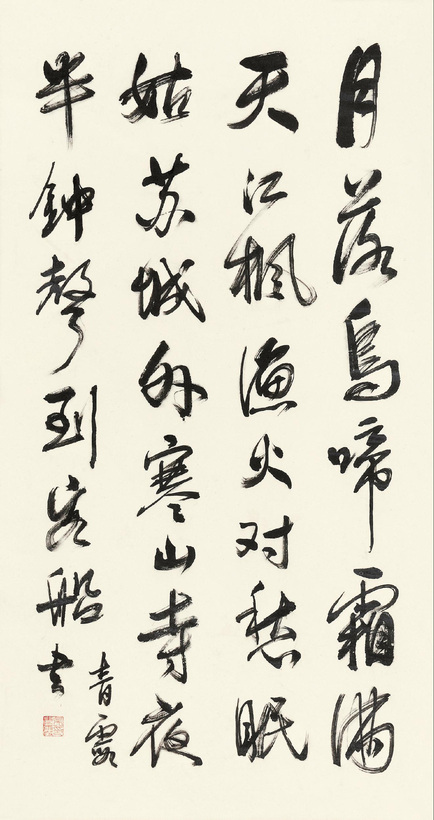 月落烏啼霜满
天江楓渔火对愁眠
姑苏城外寒山寺夜
半钟聲到客船
青
书